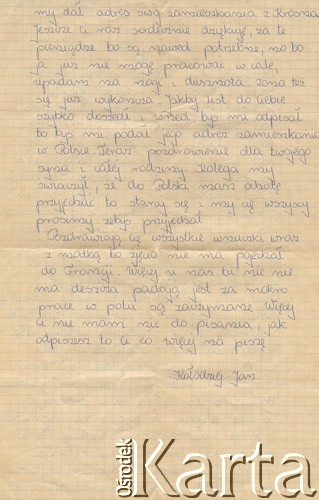 my dał adres swój zamieszkania z Krosna
Jeszcze ci raz serdecznie dziękuję, za te
pieniądze bo są nawed potrzebne, no bo
ja już nie mogę pracować w cale,
upadam na nogi i dusznota. żona też
się już wykończa. Jakby list do Ciebie
szybko doszedł i wned byś mi odpisał
to byś mi podał jego adres zamieszkania
w Polsce. Teraz pozdrowienie dla twojego
syna i całej rodziny. Kolega my
że do Polska masz
przyjechać to staraj się i my cię wszyscy
prosimy żebyś przyjechał.
Pozdrawiają cię wszystkie wnuczki wraz
z matką bo zięcia nie ma pojechał
do Francji. Więcej u nas tu nic nie
ma deszcza padają jest za mokro
prace w polu są zaczynane. Więcej
ci nie mam nic do pisania, jak
odpiszesz to ci co więcej na piszę.
Kołodziej Jan.
Ośrodek
Karta